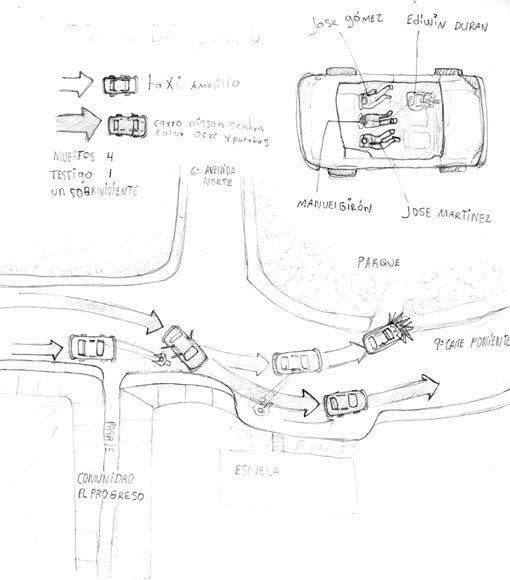 JOSE GÓMEZ
EDIWIN DURAN
taxi AMARILLO
carro nissan sentra
color ocre 4 puertas
MUERTOS 4
TESTIGO 1
UN SOBRIVIVIENTE
6ª AVENIDA
NORTE
MANUEL GIRÓN
JOSE MARTINEZ
PARQUE
9ª CALLE PONIENTE
PASAJE
COMUNIDAD
EL PROGRESO
ESCUELA